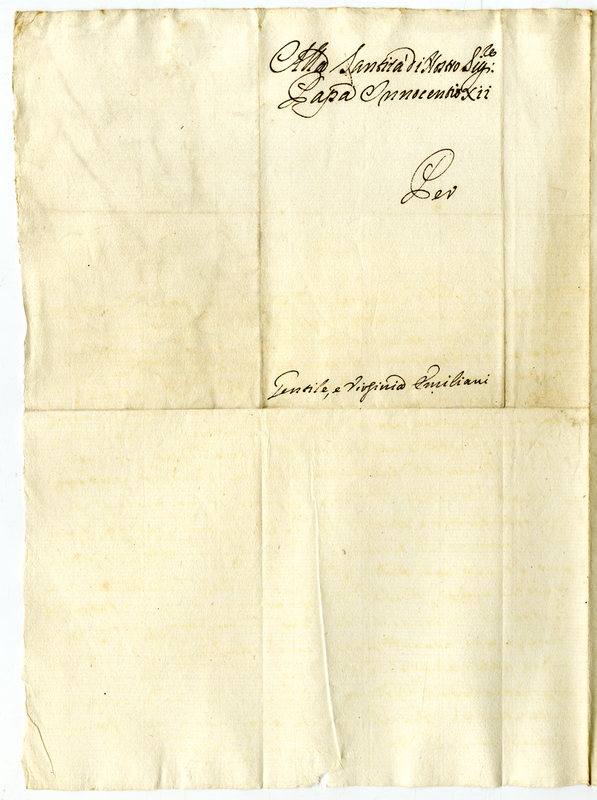 Alla Santità di Nostro Sig:re
Papa Innocentio Xii
Per
Gentile, e Virginia Emiliani